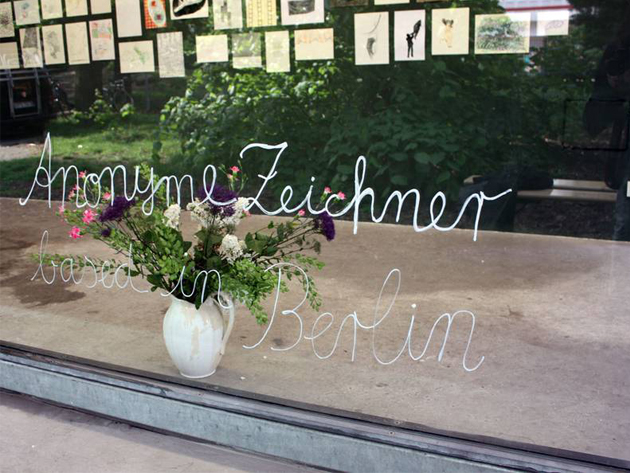 Anonyme Zeichner
based in Berlin